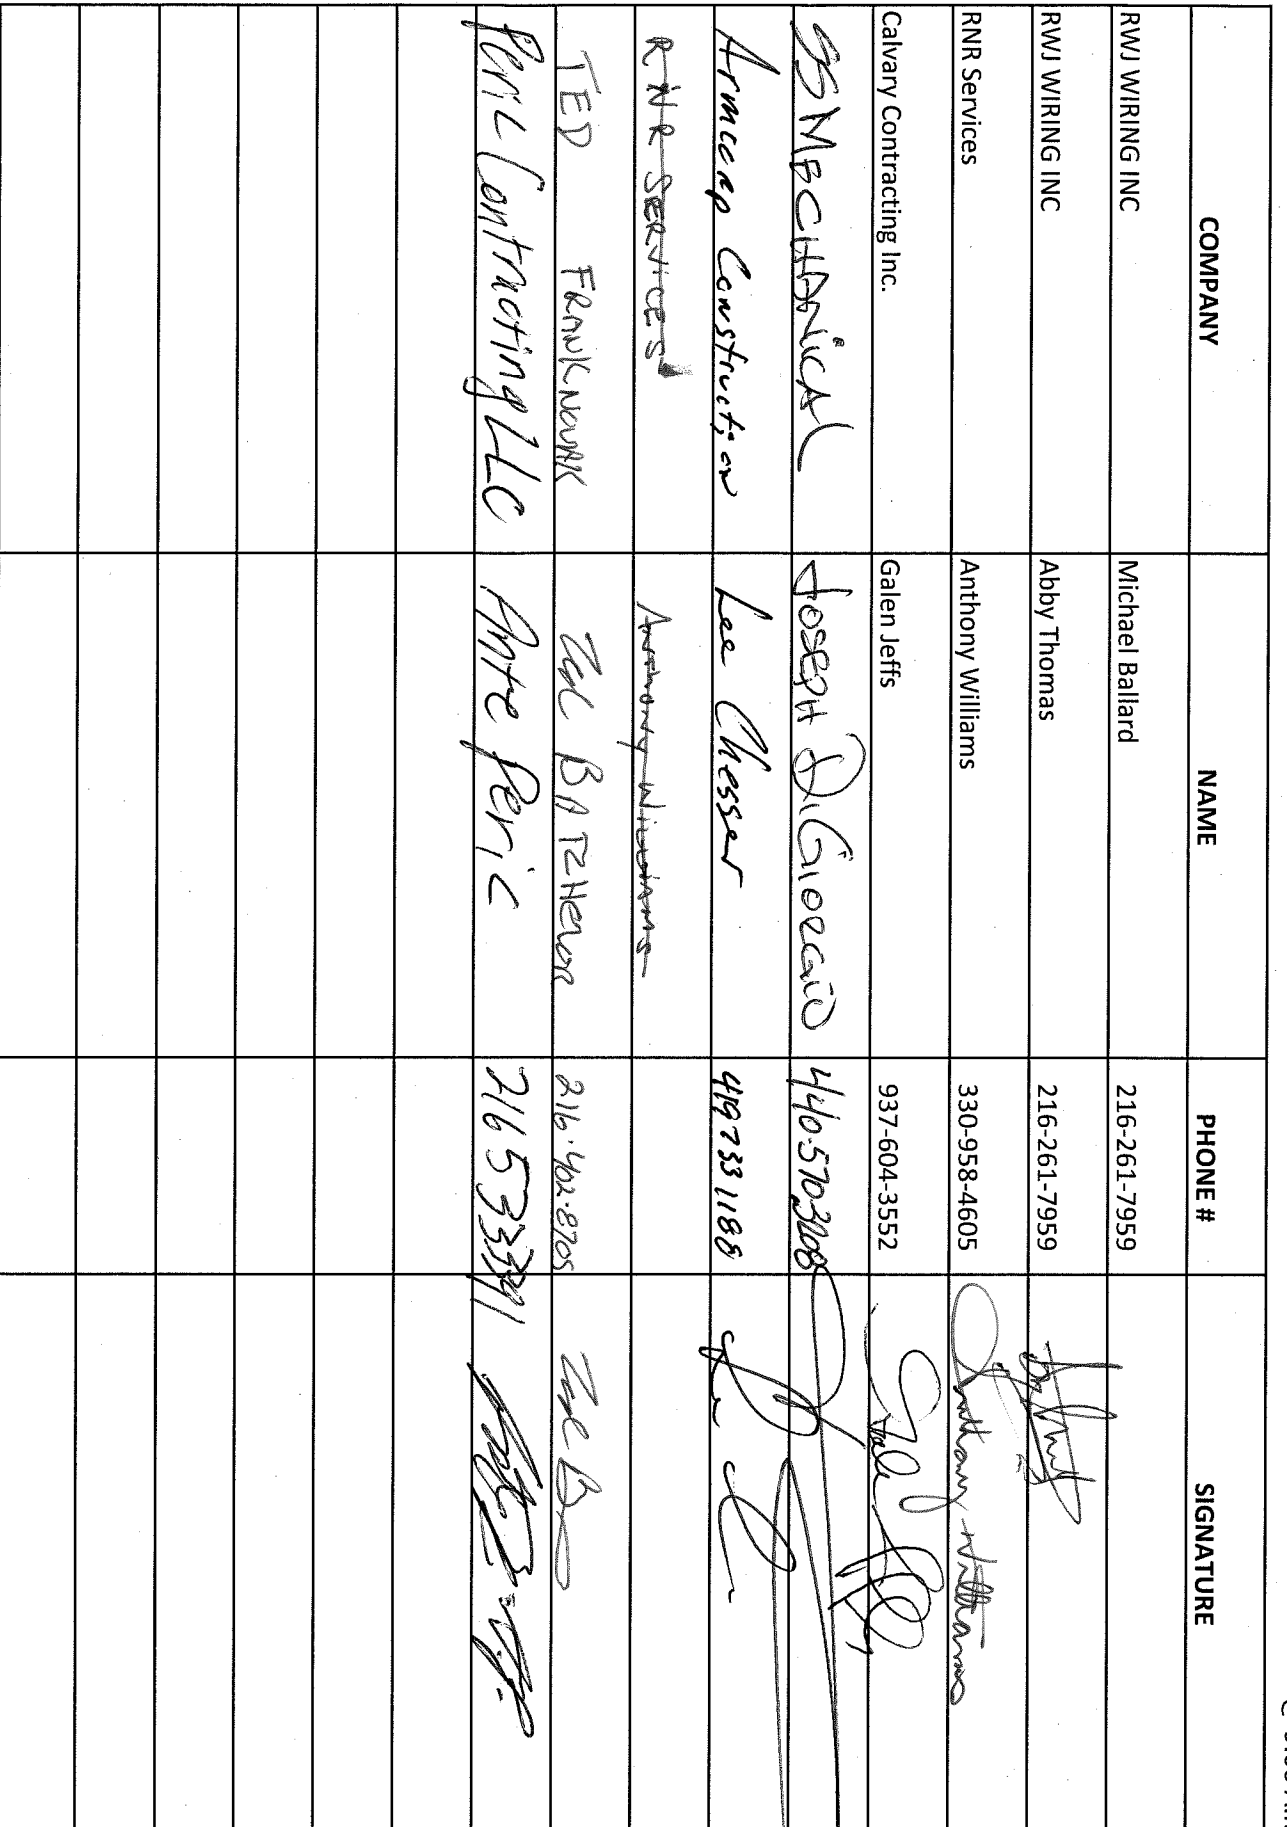 COMPANY NAME PHONE # SIGNATURE
RWJ WIRING INC Michael Ballard 216-261-7959
RWJ WIRING INC Abby Thomas 216-261-7959
RNR Services Anthony Williams 330-958-4605 Anthony Williams
Calvary Contracting Inc. Galen Jeffs 937-604-3552
SS MECHANICAL JOSEPH DiGIORGIO 440-570-3208
Armcorp Construction Lee Chesser 419 733 1188
RNR SERVICES Anthony Williams
TED FRANKNOWK Zac 216-402-8705
Peric Contracting LLC Ante Peric 216 5333941